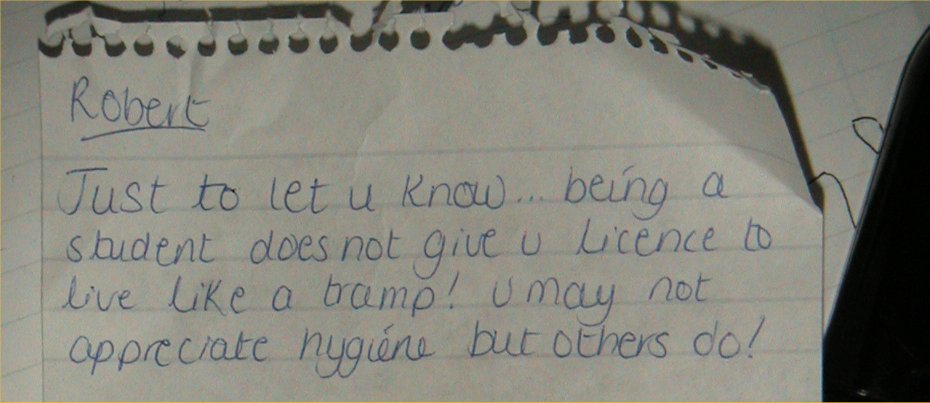 Robert
Just to let u know... being a
student does not give u licence to
live like a tramp! u may not
appreciate hygiene but others do!